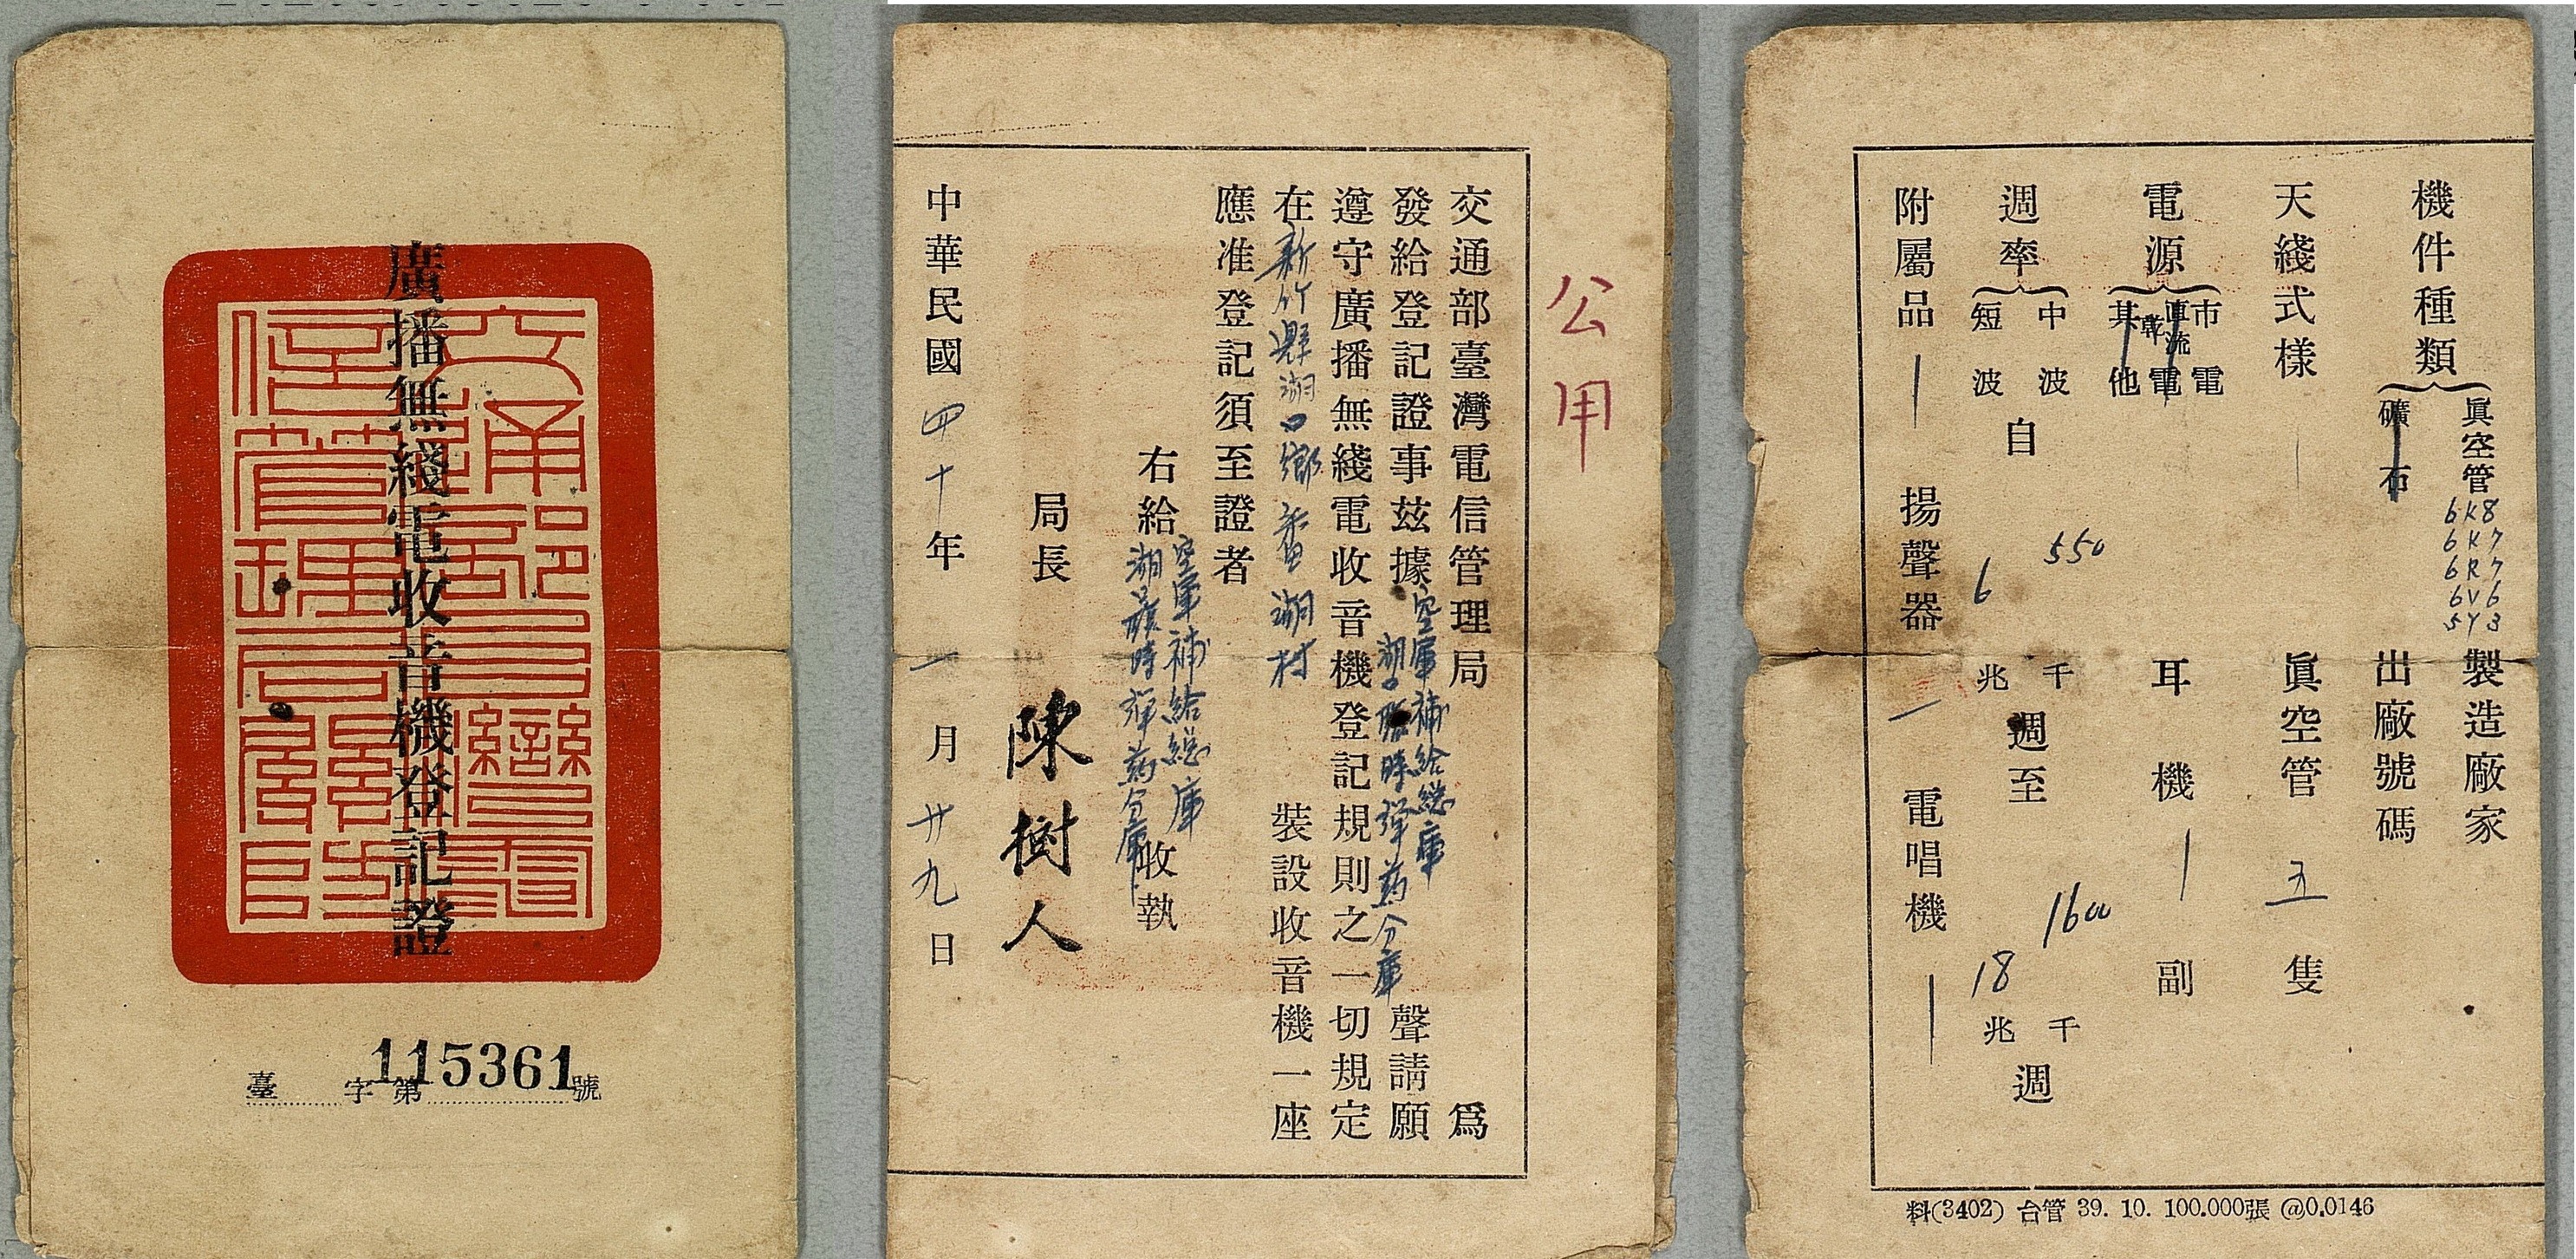 廣播無綫電收音機登記證
臺 字第115361號
公用
交通部臺灣電信管理局 爲
發給登記證事兹據空軍補給總庫湖口臨時彈药分庫聲請願
遵守廣播無綫電收音機登記規則之一切規定
在新竹縣湖口鄉 湖村 裝設收音機一座
應准登記須至證者
右給空軍補給總庫湖口臨時彈药分庫收執
局長 陳樹人
中華民國四十年一月廿九日
機件種類 真空管 6K8 6K7 6R7 6V6 5Y3 製造廠家
礦石 出廠號碼
天綫式樣 真空管 五 隻
電源 市電 直流電 乾電 其他 耳機 副
週率 中波 自 550 千週至 1600 千週
短波 6 兆 18 兆
附屬品 揚聲器 一 電唱機
料(3402) 台管 39. 10. 100.000張 @0.0146